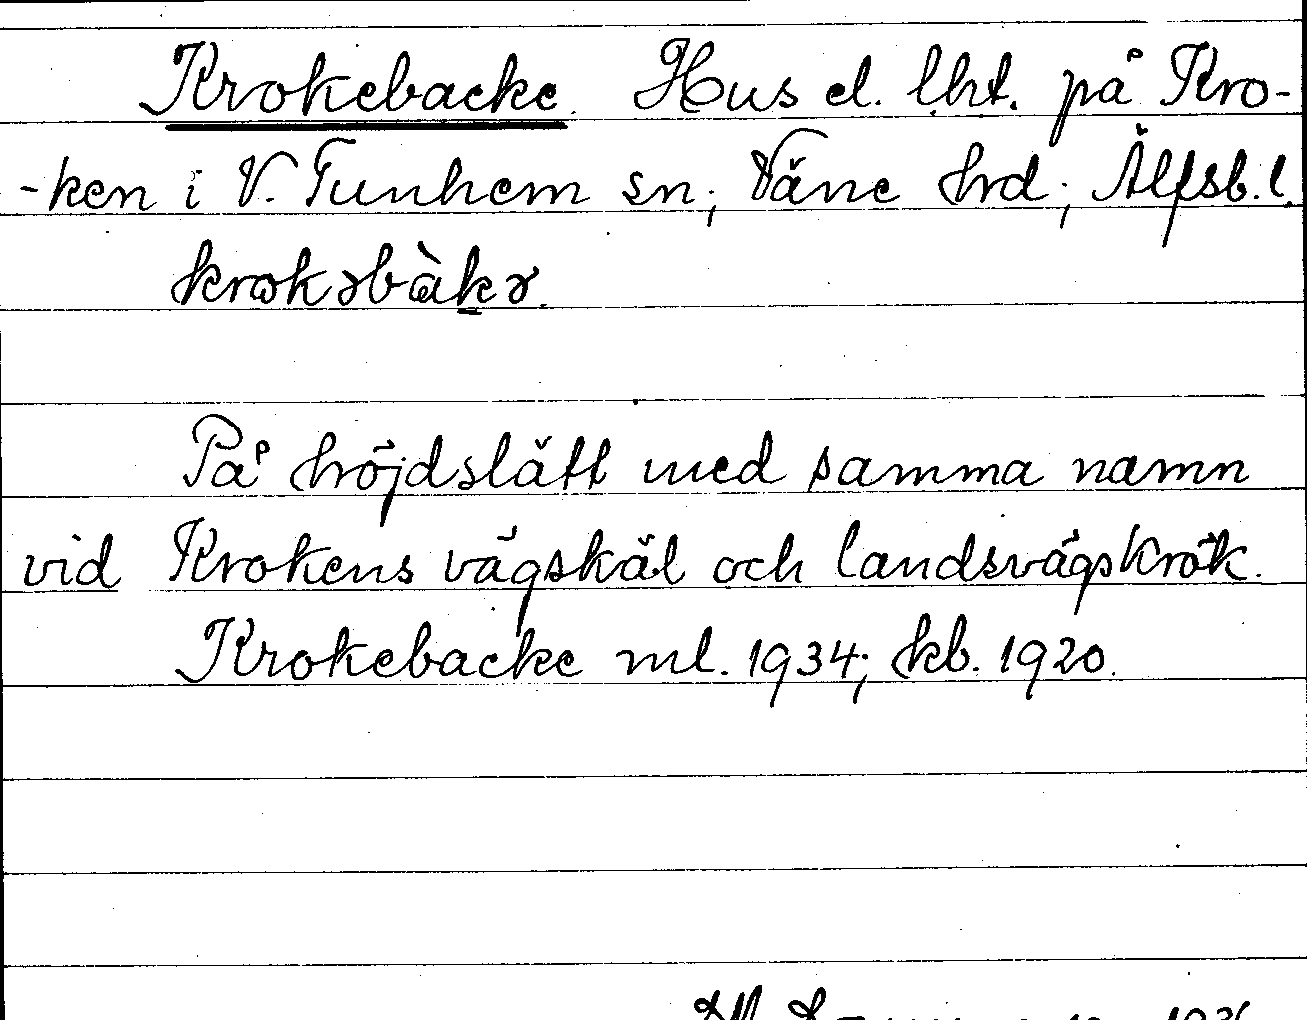 Krokebacke. Hus el. lht. på Kro-
-ken i V. Tunhem sn; Väne hrd; Älfsb. l.
krokəbàkə.
På höjdslätt med samma namn
vid Krokens vägskäl och landsvägskrök.
Krokebacke ml. 1934; kb. 1920.